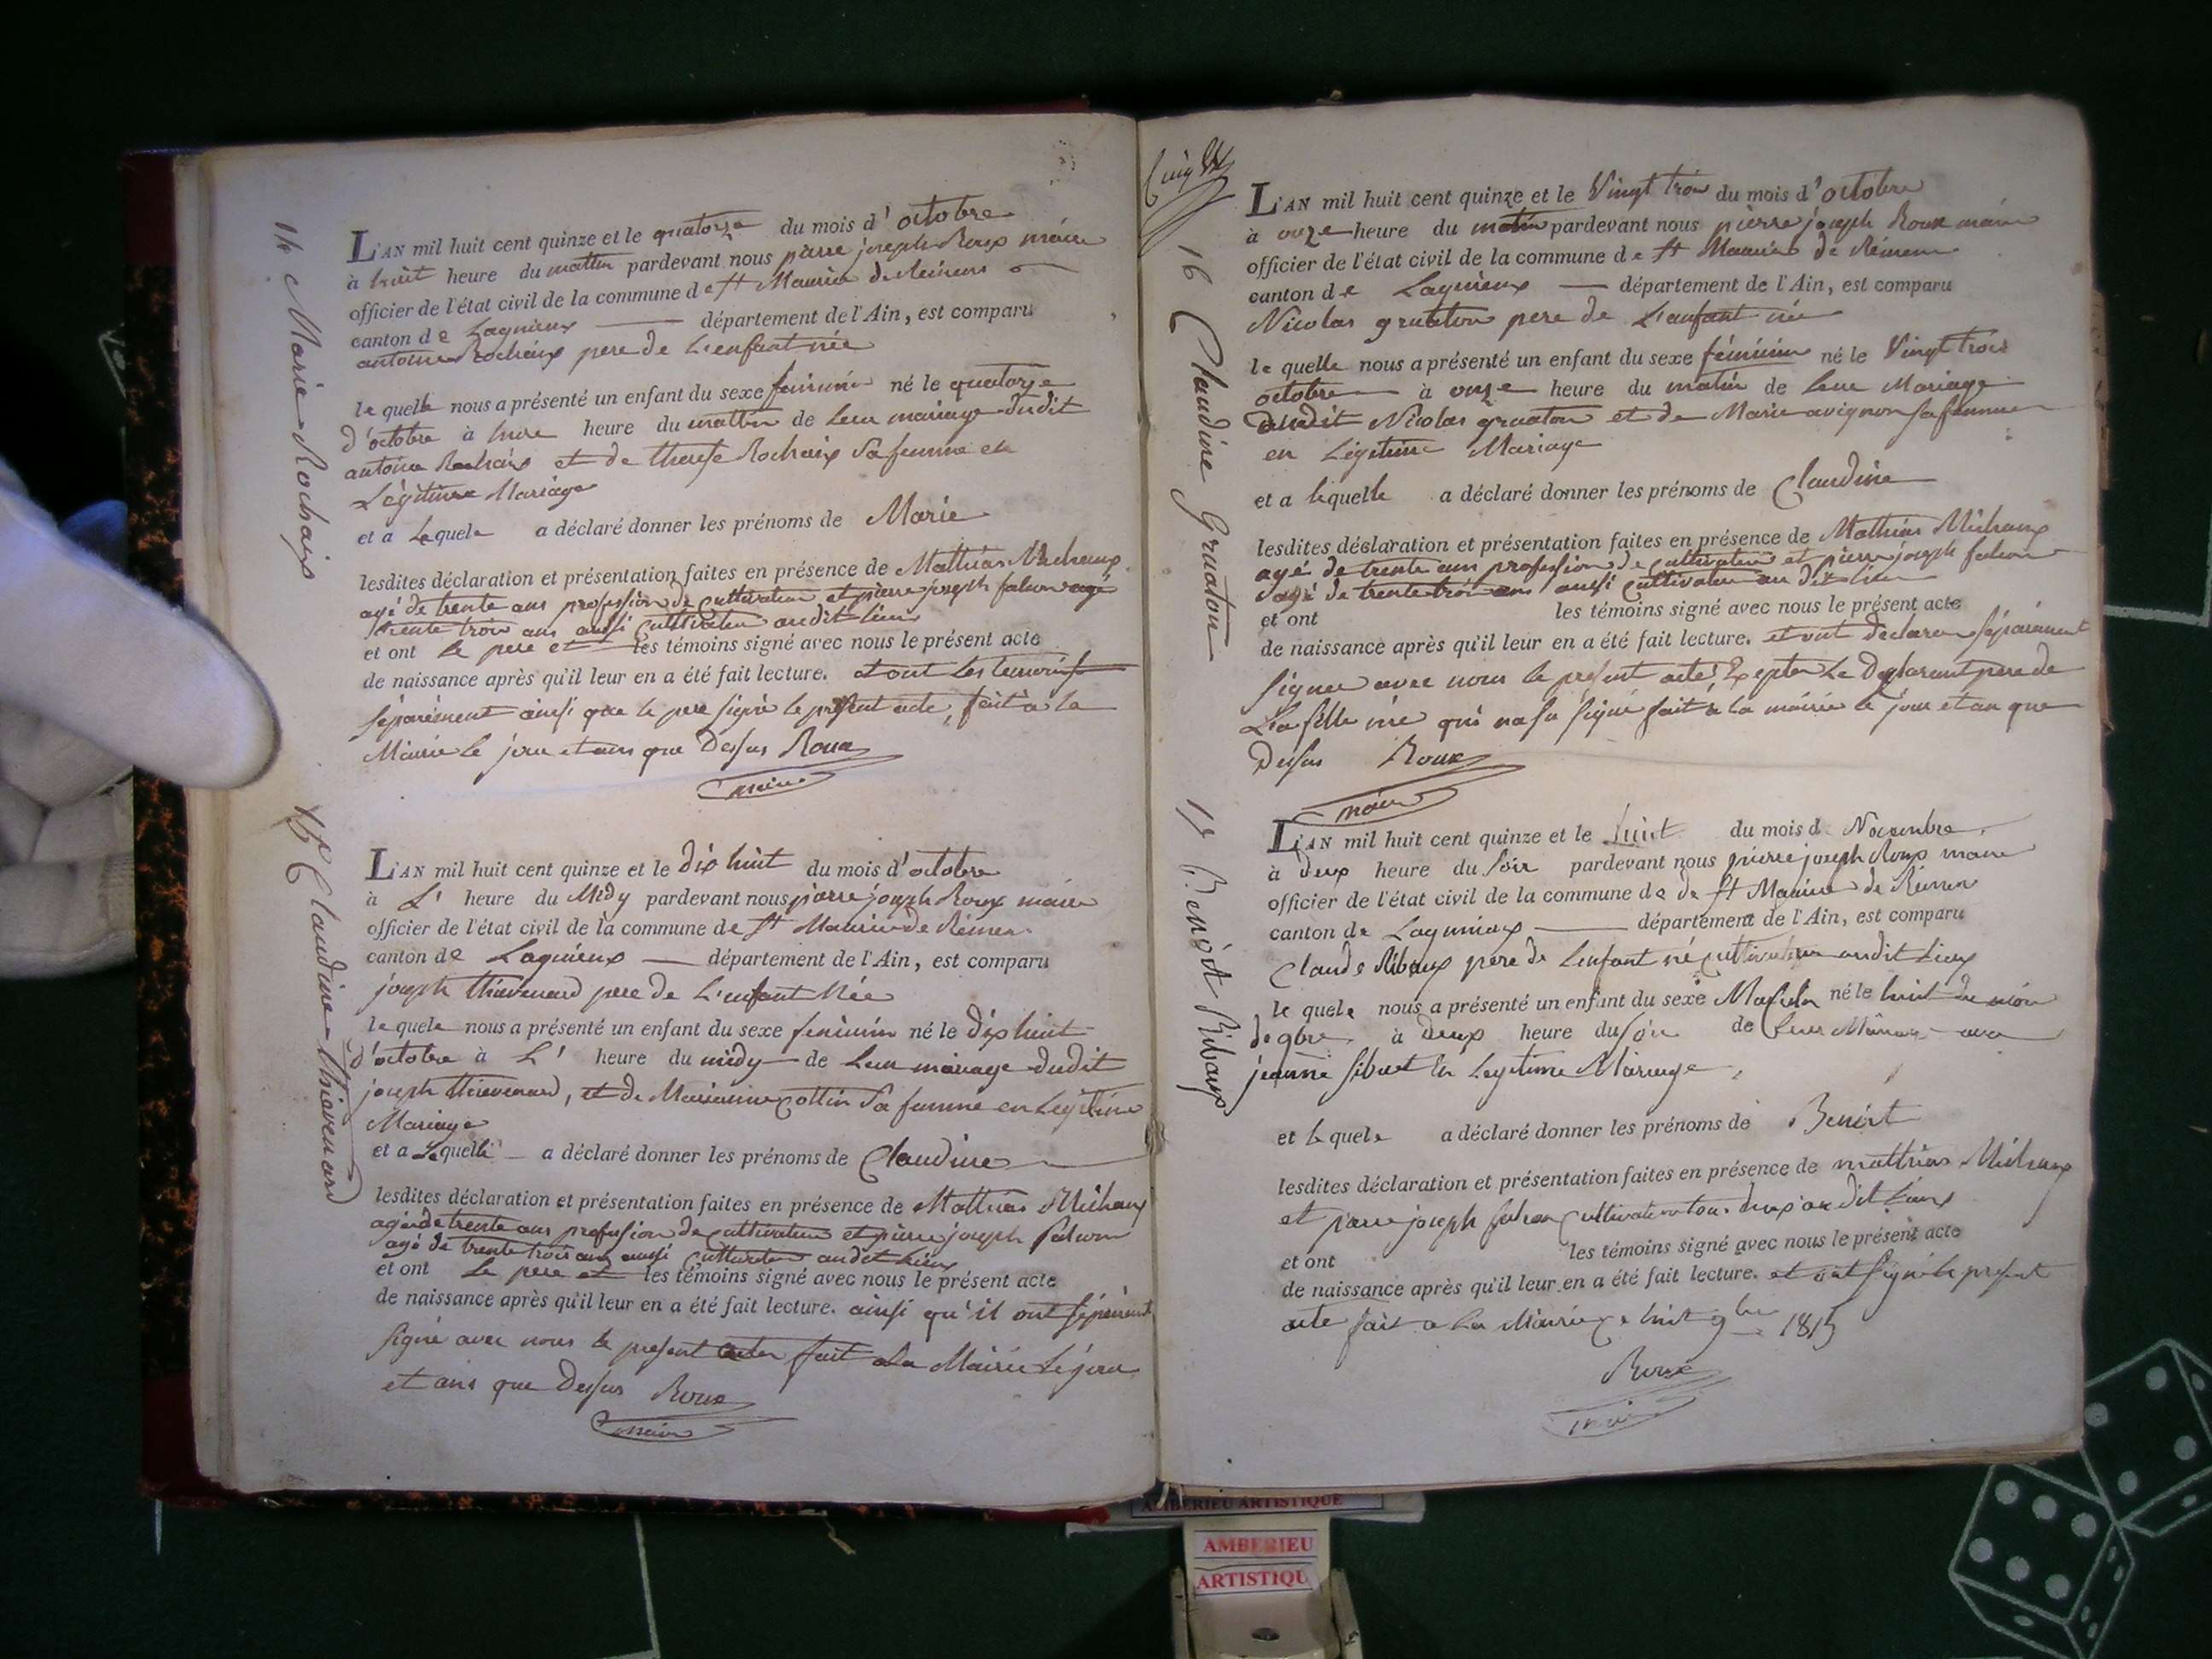 14 Marie Rochaix
L'AN mil huit cent quinze et le quatorze du mois d'octobre
à huit heure du mattin pardevant nous pierre joseph Roux maire
officier de l'état civil de la commune de St Maurice de Reimens
canton de Lagnieux département de l'Ain, est comparu
antoine Rochaix pere de L'enfant née
le quelle nous a présenté un enfant du sexe feminin né le quatorze
d'octobre à heure du mattin de Leur mariage dudit
antoine Rochaix et de therese Rochaix Sa femme en
Légitime Mariage
et a Lequele a déclaré donner les prénoms de Marie
lesdites déclaration et présentation faites en présence de Mathias Michaux
agé de trente ans profession de Cultivateur et pierre joseph falcon agé
trente trois ans aussi Cultivateur audit lieu
et ont le pere et les témoins signé avec nous le présent acte
de naissance après qu'il leur en a été fait lecture. et ont Les temoins
séparément ainsi que le pere signé le présent acte, fait a la
Mairie le jour et ans que Dessus Roux
maire
15 Claudine thievenard
L'AN mil huit cent quinze et le dix huit du mois d'octobre
à L' heure du Midy pardevant nous pierre joseph Roux maire
officier de l'état civil de la commune de St Maurice de Rémens
canton de Lagnieux département de l'Ain, est comparu
joseph thievenard pere de L'enfant Née
le quele nous a présenté un enfant du sexe feminin né le dix huit
d'octobre à L' heure du midy de Leur mariage dudit
joseph thievenard, et de Marianne Cottin Sa femme en Legitime
Mariage
et a Lequelle a déclaré donner les prénoms de Claudine
lesdites déclaration et présentation faites en présence de Mathias Michaux
agé de trente ans profession de Cultivateur et pierre joseph falcon
agé de trente trois ans aussi Cultivateur audit Lieux
et ont Le pere et les témoins signé avec nous le présent acte
de naissance après qu'il leur en a été fait lecture. ainsi qu'il ont séparément
signé avec nous le present acte fait a La Mairie Le jour
et ans que Dessus Roux
maire
16 Claudine Gruaton
L'AN mil huit cent quinze et le Vingt trois du mois d'octobre
à onze heure du matin pardevant nous pierre joseph Roux maire
officier de l'état civil de la commune de St Maurice de Rémens
canton de Lagnieux département de l'Ain, est comparu
Nicolas gruaton pere de L'enfant née
le quelle nous a présenté un enfant du sexe féminin né le Vingt trois
octobre à onze heure du matin de leur Mariage
dudit Nicolas gruaton et de Marie avignon sa femme
en Légitime Mariage
et a lequelle a déclaré donner les prénoms de Claudine
lesdites déclaration et présentation faites en présence de Mathias Michaux
agé de trente ans profession de Cultivateur et pierre joseph falcon
agé de trente trois ans aussi Cultivateur au dit lieu
et ont les témoins signé avec nous le présent acte
de naissance après qu'il leur en a été fait lecture. et ont declarer séparément
signer avec nous le présent acte Excepter Le Declarant pere de
La fille née qui na su signé fait a la mairie le jour et an que
Dessus Roux
maire
17 Benoit Ribaux
L'AN mil huit cent quinze et le huit du mois d Novembre
à deux heure du Soir pardevant nous pierre joseph Roux maire
officier de l'état civil de la commune de de St Maurice de Rémens
canton de Lagnieux département de l'Ain, est comparu
Claude Ribaux pere de L'enfant né Cultivateur audit Lieux
le quele nous a présenté un enfant du sexe Masculin né le huit du mois
de 9bre à deux heure du soir de Leur Mariage avec
jeanne sibuet en Legitime Mariage
et lequele a déclaré donner les prénoms de Benoit
lesdites déclaration et présentation faites en présence de matthias Michaux
et pierre joseph falcon Cultivateur tous deux au dit Lieux
et ont les témoins signé avec nous le présent acte
de naissance après qu'il leur en a été fait lecture. et ont signé le present
acte fait a La Mairie Ce huit 9bre 1815
Roux
maire
AMBERIEU ARTISTIQUE
AMBERIEU
ARTISTIQU